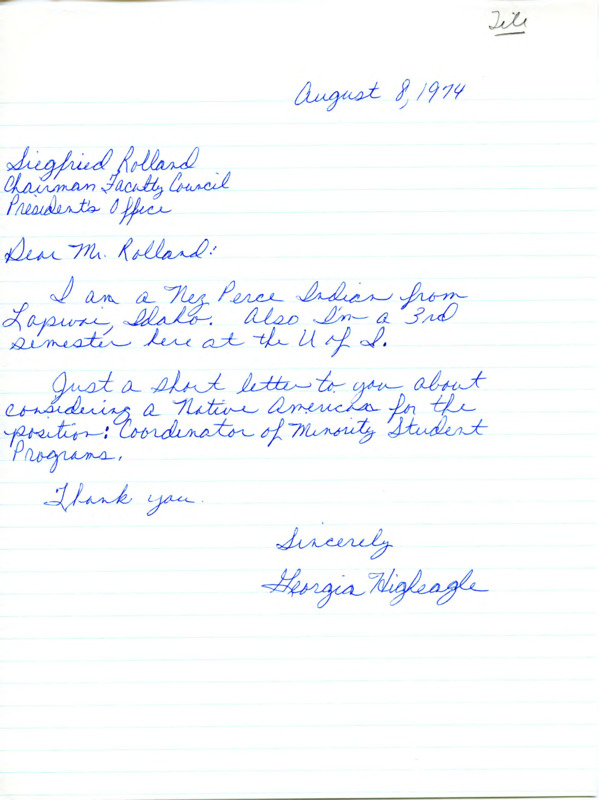 File
August 8, 1974
Siegfried Rolland
Chairman Faculty Council
President's Office
Dear Mr. Rolland:
I am a Nez Perce Indian from
Lapwai, Idaho. Also I'm a 3rd
semester here at the U of I.
Just a short letter to you about
considering a Native American for the
position: Coordenator of Minority Student
Programs.
Thank you.
Sincerely
Georgia Higheagle